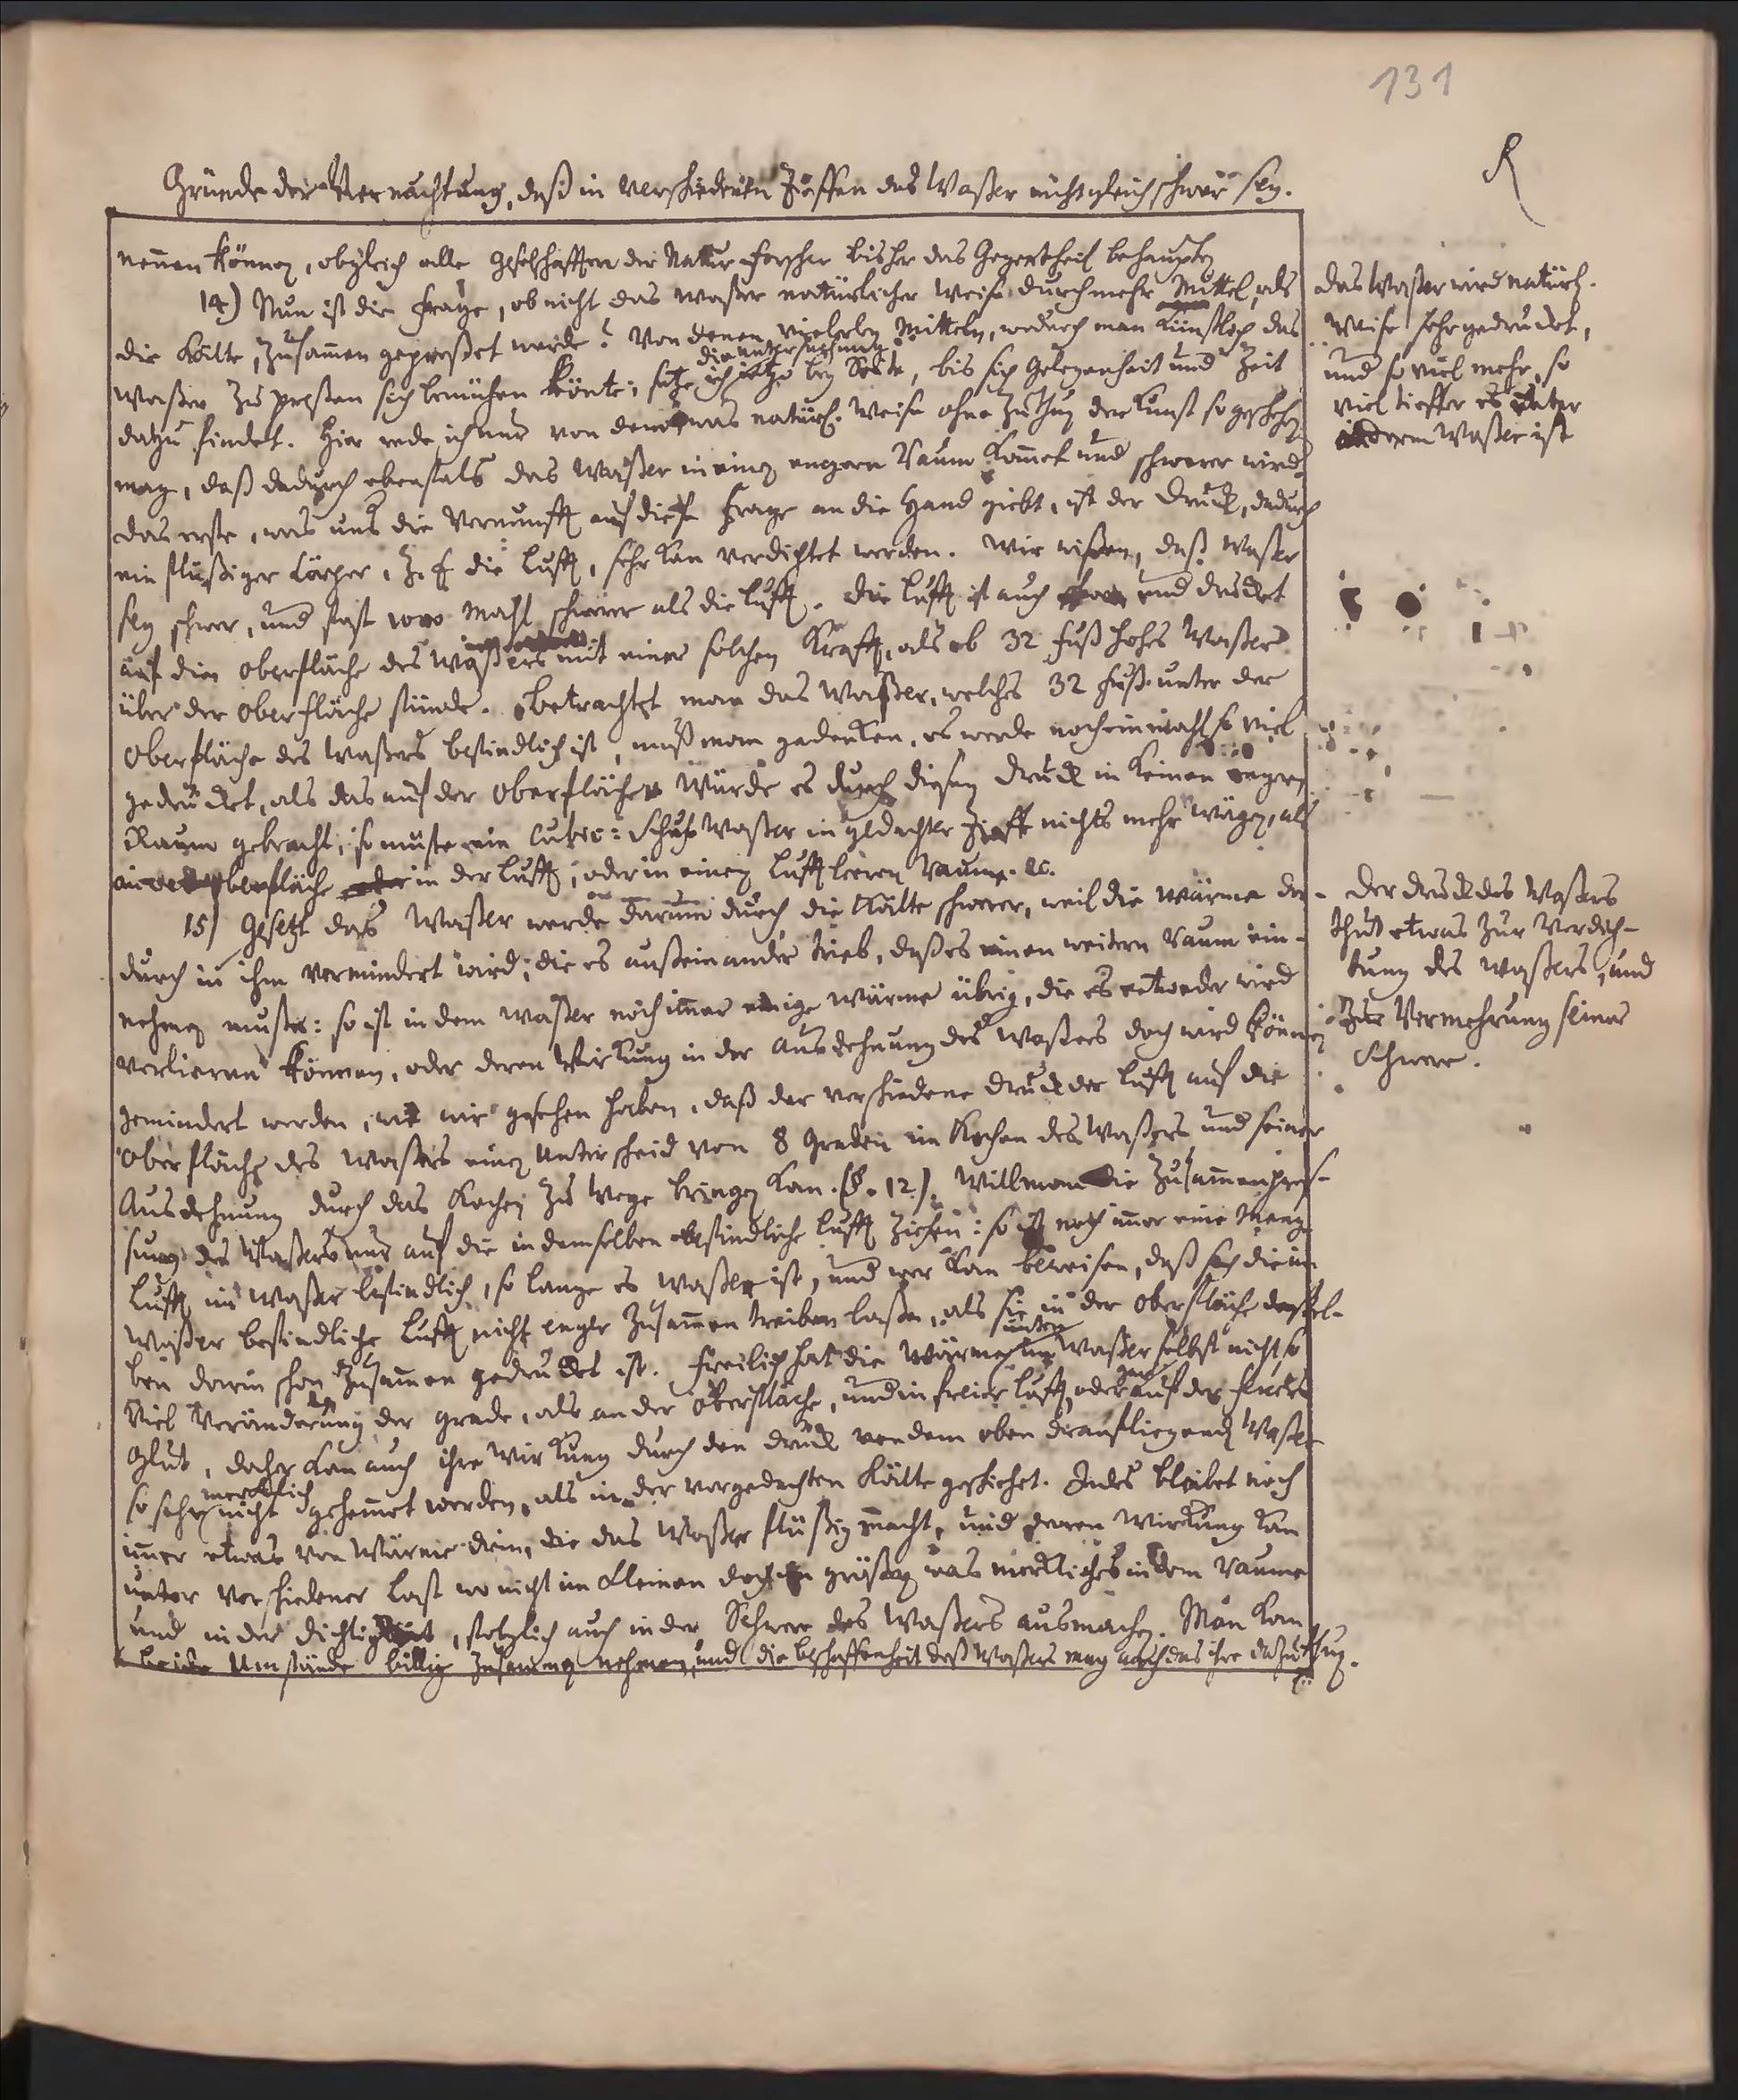 131
R
Gründe der Vermuthung, daß in verschiedenen Tieffen das Waßer nicht gleich schwer sey.
nennen können, obgleich alle Geselschafften der Natur-forscher bisher das Gegentheil behaupten
14) Nun ist die Frage, ob nicht das Waßer natürlicher Weise durch mehr Mittel, als
die Kälte, zusam̄en gepreßet werde? Von denen vielerley Mitteln, wodurch man künstlich das
die untersuchung
Waßer zu preßen sich bemühen könte; setze ich jetzo bey Seite, bis sich Gelegenheit und Zeit
dazu findet. Hier rede ich nur von dem was natürl. Weise ohne Zuthun der Kunst so geschehen
mag, daß dadurch ebenfals das Waßer in einen engern Raum kom̄et und schwerer wird.
Das erste, was uns die Vernunfft auf diese Frage an die Hand giebt, ist der Druck, dadurch
ein flüßiger Cörper, z. E. die Lufft, sehr kan verdichtet werden. Wir wißen, daß Waßer
sey schwer, und fast 1000 Mahl schwerer als die Lufft. Die Lufft ist auch schwer und drücket
auf die Oberfläche des Waßers mit einer solchen Krafft, als ob 32 Fuß hohes Waßer
über der Oberfläche stünde. Betrachtet man das Waßer, welches 32 Fuß unter der
Oberfläche des Waßers befindlich ist, muß man gedenken, es werde noch einmahl so viel
gedrücket, als das auf der Oberfläche. Würde es durch diesen Druck in keinen engern
Raum gebracht, so müste ein Cubic-Schuh Waßer in gedachter Tieffe nichts mehr wägen, als
an der Oberfläche in der Lufft, oder in einem Lufft leeren Raume. ec.
15) Gesetzt das Waßer werde darum durch die Kälte schwerer, weil die Wärme da-
durch in ihm vermindert wird, die es auseinander trieb, daß es einen weitern Raum ein-
nehmen muste: so ist in dem Waßer noch im̄er einige Wärme übrig, die es entweder wird
verlieren können, oder deren Wirkung in der Ausdehnung des Waßers doch wird können
gemindert werden, wie wir gesehen haben, daß der verschiedene Druck der Lufft auf die
Oberfläche des Waßers einen Unterscheid von 8 Graden im Kochen des Waßers und seiner
Ausdehnung durch das Kochen zu Wege bringen kan. (§. 12.). Will man die Zusam̄enpres-
sung des Waßers nur auf die in demselben befindliche Lufft ziehen: so ist noch im̄er eine Menge
Lufft im Waßer befindlich, so lange es Waßer ist, und wer kan beweisen, daß sich die im
Waßer befindliche Lufft nicht enger zusam̄en treiben laße, als sie in der Oberfläche deßel-
ben darin schon zusam̄en gedrücket ist. Freilich hat die Wärme unten im Waßer selbst nicht so
viel Veränderung der Grade, als an der Oberfläche, und in freier Lufft, oder gar auf der feuer
Glut, daher kan auch ihre Wirkung durch den Druck von dem oben drauf liegenden Waßer
so sehr mercklich nicht gehem̄et werden, als in der vorgedachten Kälte geschiehet. Indes bleibet noch
im̄er etwas von Wärme drin, die das Waßer flüßig macht, und deren Wirkung kan
unter verschiedener Last wo nicht im kleinen doch im größern was merckliches in dem Raume
und in der Dichtigkeit, folglich auch in der Schwere des Waßers ausmachen. Man kan
beide Umstände billig zusam̄en nehmen, und die beschaffenheit deß Waßers mag auch das ihre dazu thun.
Das Waßer wird natürl.
Weise sehr gedrücket,
und so viel mehr, so
viel tieffer es unter
anderm Waßer ist
Der Druck des Waßers
thut etwas zur Verdich-
tung des Waßers, und
zur Vermehrung seiner
Schwere.